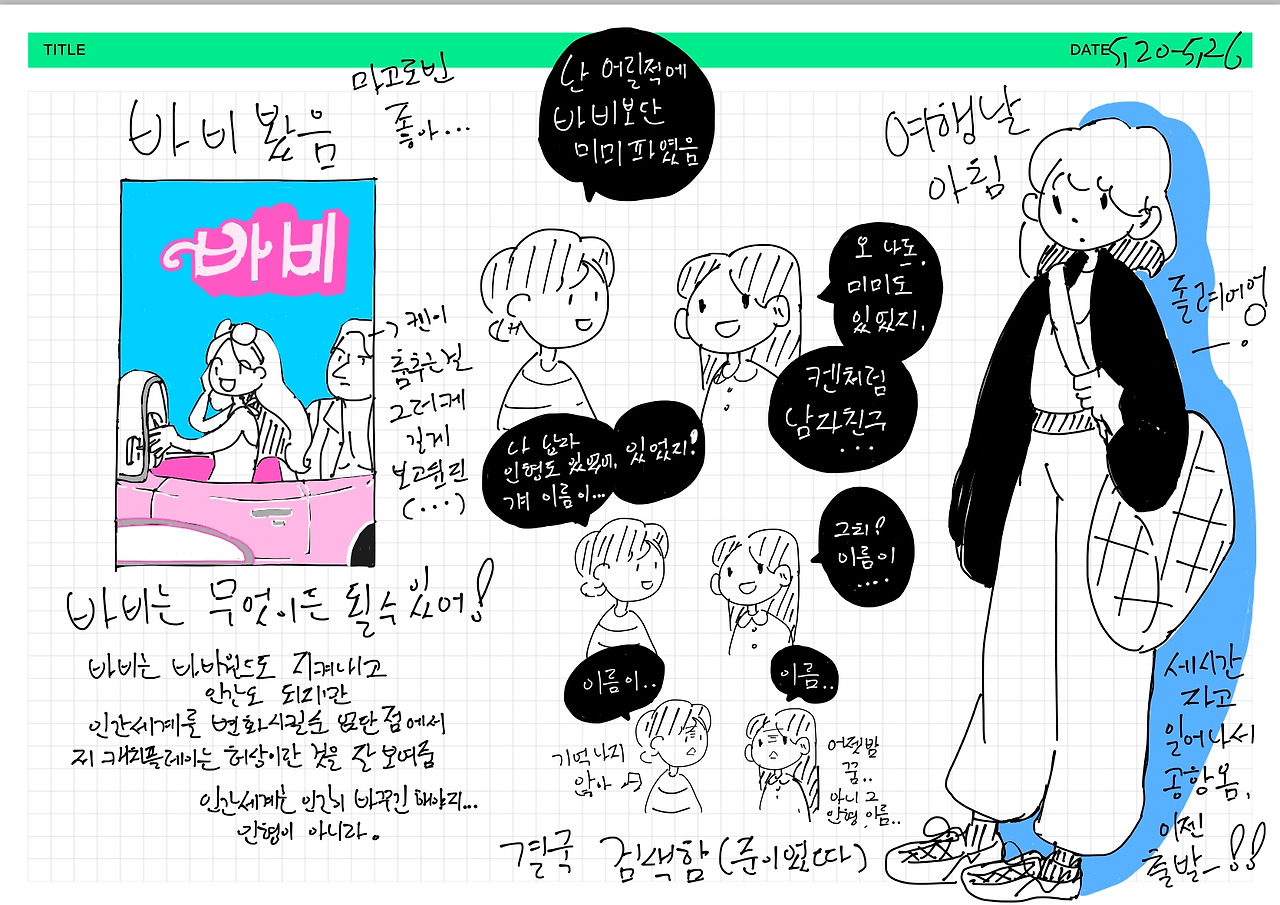 TITLE
DATE 5.20-5.26
바비 봤음
마고로빈
좋아...
바비
켄이
춤추는걸
그렇게
길게
보고왔던
(...)
바비는 무엇이든 될수있어!
바비는 바비월드도 지켜내고
인간도 되지만
인간세계를 변화시킬순 없단 점에서
지 캐피플레이는 허상이란 것을 잘 보여줌
인간세계는 인간이 바꾸긴 해야지...
인형이 아니라.
난 어릴적에
바비보단
미미 파였음
오 나도.
미미도
있었지.
켄처럼
남자친구
...
나 남자
인형도 있었어,
걔 이름이...
있었지!
그치?
이름이
....
이름이..
이름..
기억나지
않아
어젯밤
꿈..
아니 그
인형 이름..
결국 검색함 (준이었다)
여행날
아침
졸려어엉
세시간
자고
일어나서
공항옴.
이젠
출발_!!